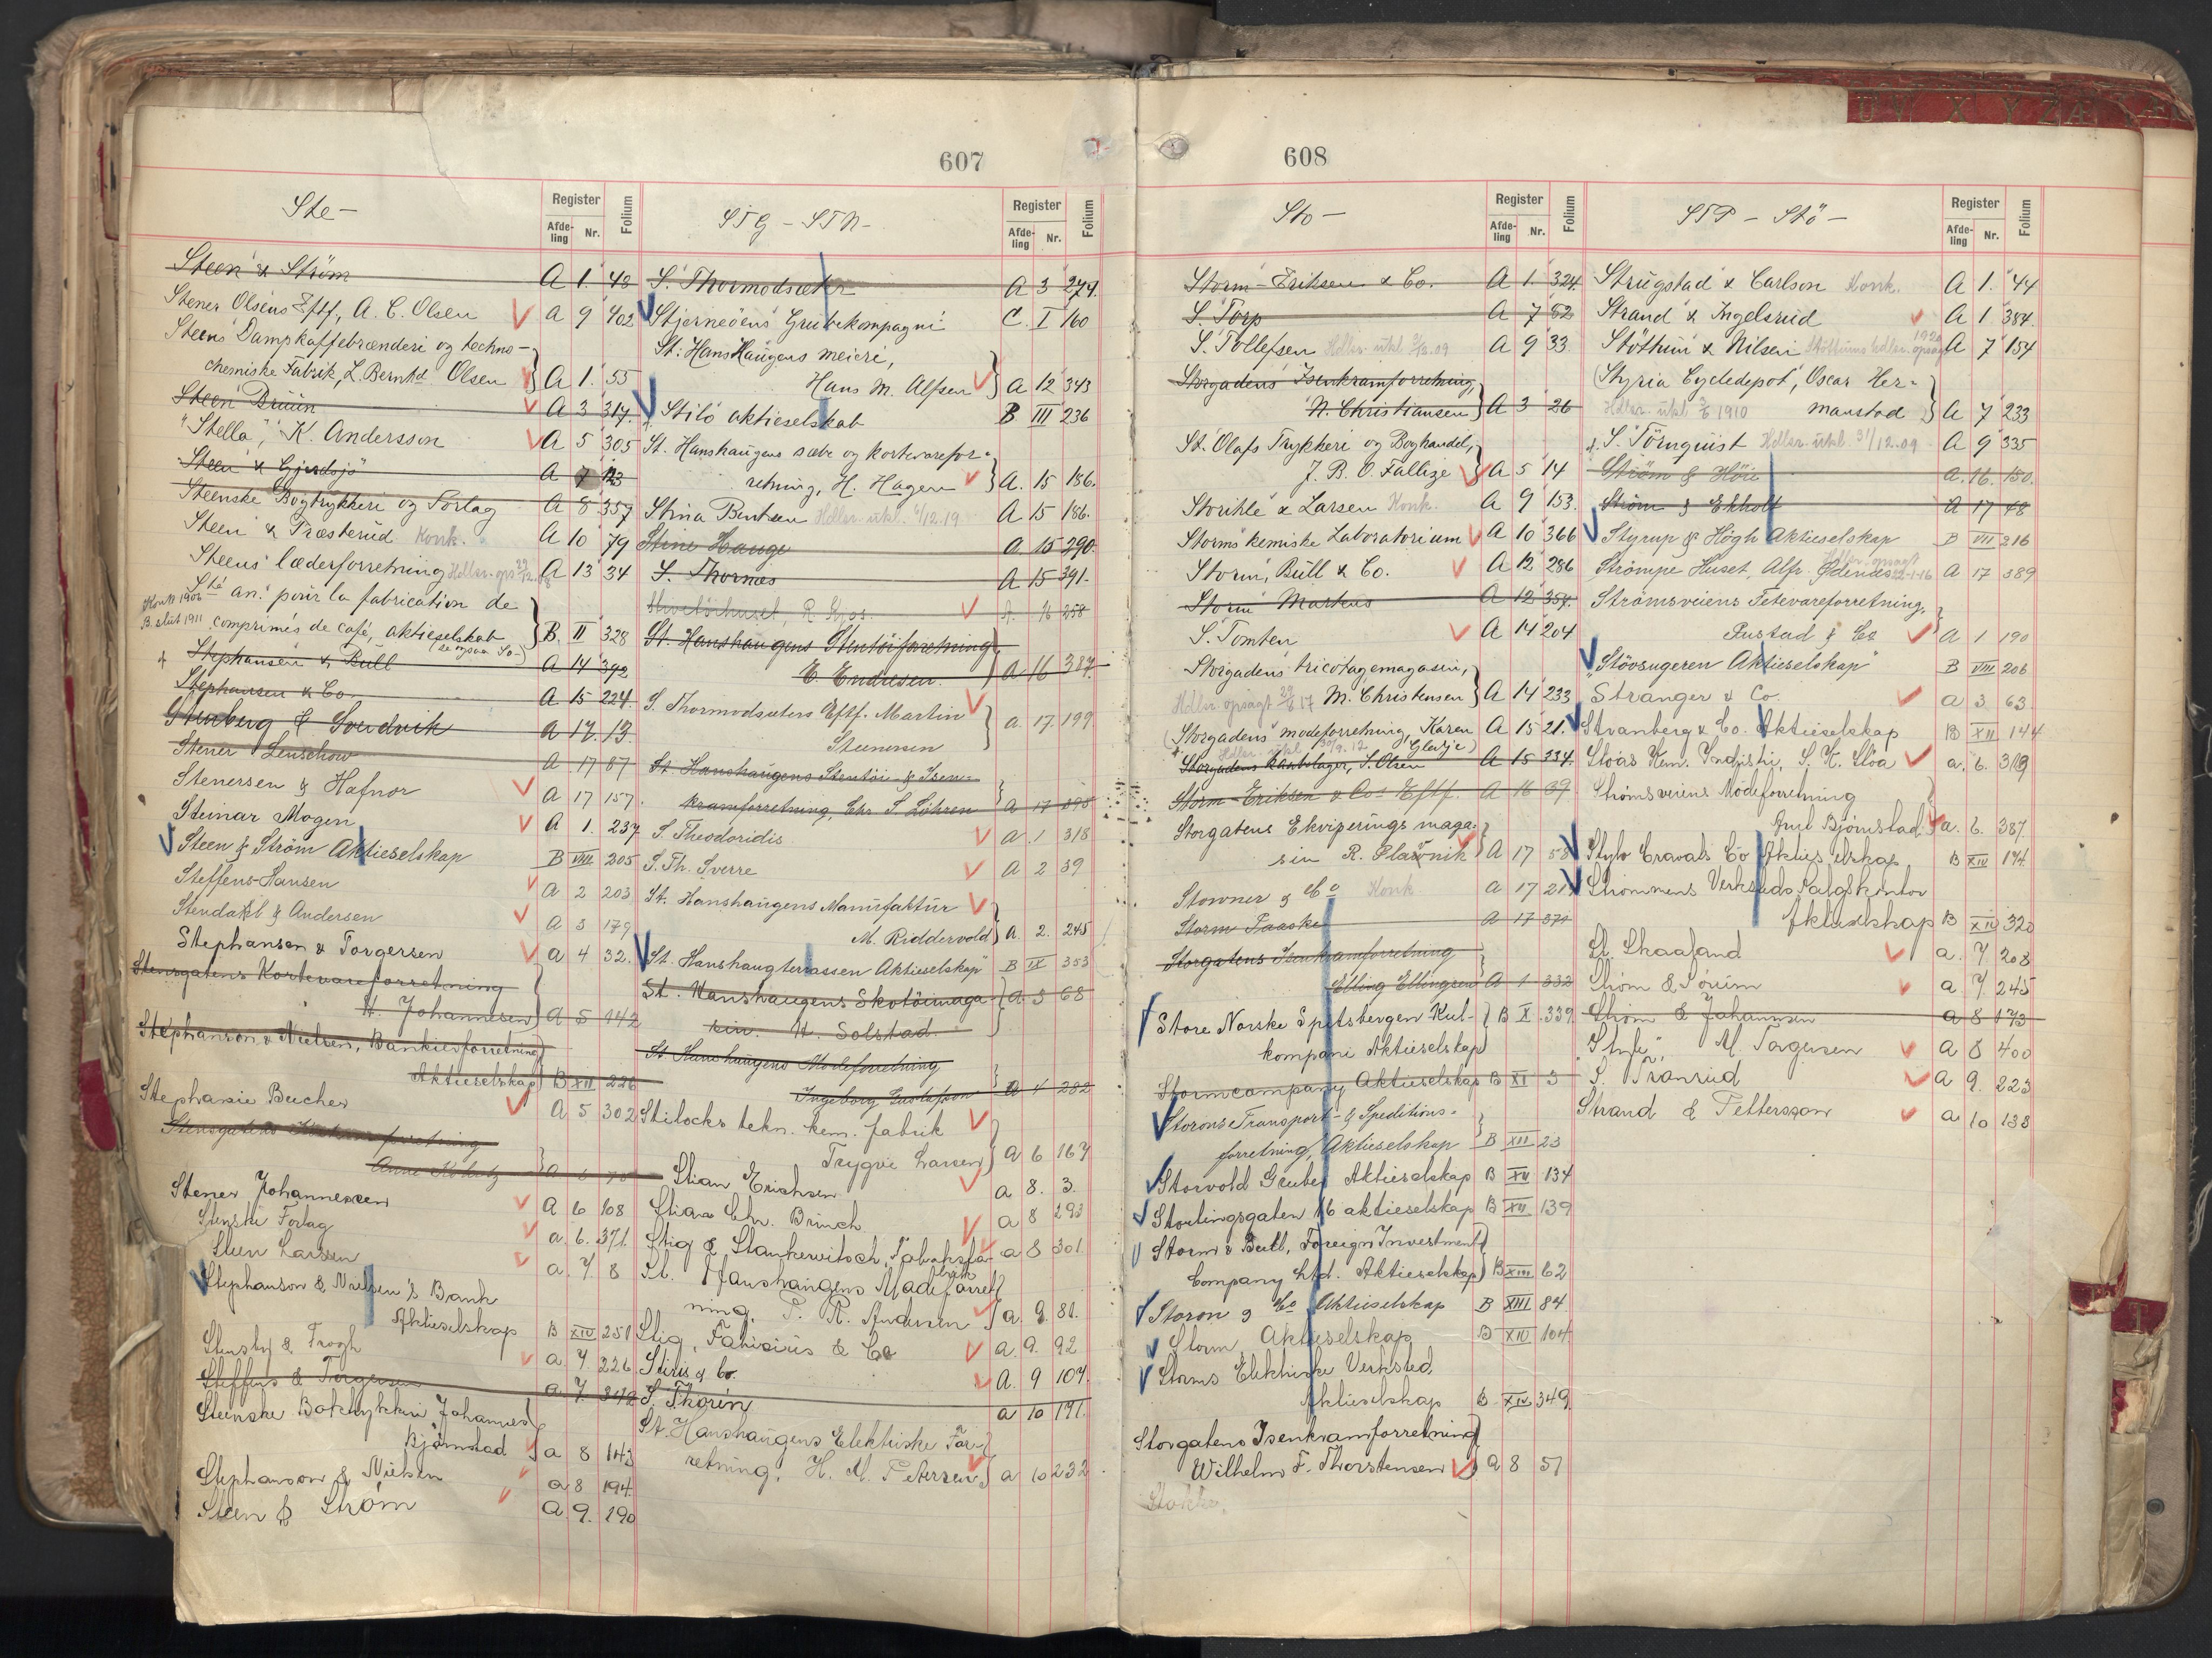 607
Ste-
Register
Afde-
ling
Nr.
Folium
Steen & Ström A 1. 48
Stener Olsens Eftf, A. C. Olsen A 9 402
Steens Dampkaffebrænderi og techno-
chemiske Fabrik, L. Bernhd Olsen A 1. 55
Steen Bruun A 3 317.
"Stella", K. Andersson A 5 305
Steen & Gjerdsjö A 7 123
Steenske Bogtrykkeri og Forlag A 8 357
Steen & Træsterud Konk. A 10 79
Steens læderforretning A 13 34
Sté an. pour la fabrication de
Konk 1906
B. slut 1911
comprimés de café, aktieselskab B. II 328
(se ogsaa So-)
Stephansen & Bull A 14 392
Stephansen & Co. A 15 224.
Stenberg & Svendvik A 17. 13
Stener Lenschow A 17 87
Stenersen & Hafnor A 17 157.
Steinar Mogen A 1. 237
Steen & Ström Aktieselskap B VIII 205
Steffens-Hansen A 2 203
Stendahl & Andersen A 3 179
Stephansen & Torgersen A 4 32.
Stensgatens Kortevareforretning
H. Johannesen A 5 142
Stephanson & Nielsen, Bankierforretning
Aktieselskap B XII 226
Stephanie Bucher A 5 302
Stensgatens
Stener Johannessen A 6 108
Stenske Forlag a. 6. 371.
Steen Larssen a. 7 8
Stephanson & Nielsen's Bank
Aktieselskap B XIV 251
Stensby & Trogh a 7. 226
Steffens & Torgersen a 7. 342
Steenske Boktrykkeri Johannes
Björnstad a 8 143
Stephanson & Nielsen a 8 194.
Steen & Ström a 9. 290
STG - STN-
Register
Afde-
ling
Nr.
Folium
S. Thormodsæter A 3 274.
Stjerneöens Grubekompagni C. I 160
St: HansHaugens meieri,
Hans M. Alfsen A 12 343
Stilo aktieselskab B III 236
St. Hanshaugens sæbe og kortevarefor-
retning, H. Hagen A. 15 186.
Stina Bentsen Hdlsr. uhl. 6/12.19 A 15 186.
Stene Hauge A 15 290.
S. Thornæs A 15 391.
A. 16 258
St. Hanshaugens Stentöiforretning,
E. Endresen. A 16 387
S. Thormodsæters Eftf. Martin
Steenersen a. 17. 199
St. Hanshaugens Stentöi- & Isen-
kramforretning, Chr. S. Löhren A 17 398
S. Theodoridis a. 1 318
S. Th. Sverre A 2 39
St. Hanshaugens Manufaktur
M. Riddervold A. 2. 245
St. Hanshaugterrassen Aktieselskap B IX 353
St. Hanshaugens Skotöimaga-
sin. H. Solstad. A. 3 68
St. Hanshaugens Modeforretning
Ingeborg Gustafson A 4 282
Stilocks tekn. kem. fabrik
Trygve Larsen A 6 167
Stian Erichsen a 8. 3.
Stian Chr. Brinch a 8 293
Stig & Stankewitsch, Tobaksfa-
brik a 8 301
St. Hanshaugens Madeforret
ning, P. R. Andersen a. 9. 81.
Stig, Fabicius & Co a. 9. 92
Stiris & Co. A. 9 107.
S. Thorén a 10 191.
St. Hanshaugens Elektriske For-
retning, H. M. Petersen a 10 232
608
Sto-
Register
Afde-
ling
Nr.
Folium
Storm-Eriksen & Co. A 1. 324.
S. Torp A 7 52
S. Tollefsen A 9 33.
Storgadens Isenkramforretning,
N. Christiansen A 3 26
St. Olafs Trykkeri og Boghandel,
J. B. O. Fallize A 5 14
Storihle & Larsen Konk. A 9 153.
Storms kemiske Laboratorium A 10 366
Storm, Bull & Co. A 12 286
Storm Markus A 12 357.
S. Tomten A 14 204
Storgadens tricotagemagasin,
Hdlsr. opsagt 29/6 17 M. Christensen A 14 233
(Storgadens modeforretning, Karen
Gladje) A 15 21.
Storgadens Kaabelager, S. Olsen A 15 334.
Storm-Eriksen & Cos Eftf. A 16 39
Storgatens Ekviperings maga-
sin R. Plavnik A 17 58
Stowner & Co Konk a 17 217
Storm Faaske A 17 371
Storgatens Isenkramforretning
Elling Ellingsen A 1 332
Store Norske Spitsbergen Kul-
kompani Aktieselskap B X. 339.
Stormcompany Aktieselskap B XI 3
Storons Transport- & Speditions-
forretning, Aktieselskap B XII 23
Storvold Gruber Aktieselskap B XII 134
Stortingsgaten 16 aktieselskap B XII 139
Storm & Bull, Foreign Investment
Company Ltd. Aktieselskap B XIII 62
Storon & Co Aktieselskap B XIII 84.
Storm Aktieselskap B XIV 104
Storms Elektriske Verksted,
Aktieselskap B XIV 349.
Storgatens Isenkramforretning
Wilhelm F. Thorstensen A 8 51
STP - Stö-
Register
Afde-
ling
Nr.
Folium
Strugstad & Carlson Konk. A 1. 44
Strand & Ingelsrud A 1 384.
Stöthun & Nilsen A 7 154
(Styria Cycledepot, Oscar Her-
Hdlsr. uhl 2/6 1910 manstad) A 7 233
S. Törnquist Hdlsr. uhl. 31/12.09 A 9 335
Ström & Höie A. 16. 150.
Ström & Ekholt A 17 48
Styrup & Högh Aktieselskap B VII 216
Strömpe Huset, Alfr. Ødenæs A 17 389
Strömsveiens Fetevareforretning,
Rustad & Co A 1 190
"Stövsugeren Aktieselskap" B VIII 206
Stranger & Co. a 3. 63.
Stranberg & Co. Aktieselskap B XII 144
Stöas Kem. Industri, S. K. Stöa a. 6. 319
Strömsveiens Modeforretning
Björnstad a. 6. 387.
Stylo Cravats Co Aktieselskap B XIV 194.
Strömmens Verksteds Salgskontor
Aktieselskap B XIV 320
St. Skaafand a. 7 208
Ström & Sörum a 7. 245
Ström & Johannsen a 8 173
M. Torgersen A 8 400
S. Tranrud A 9. 223
Strand & Pettersson a 10 138
U V W X Y Z Æ